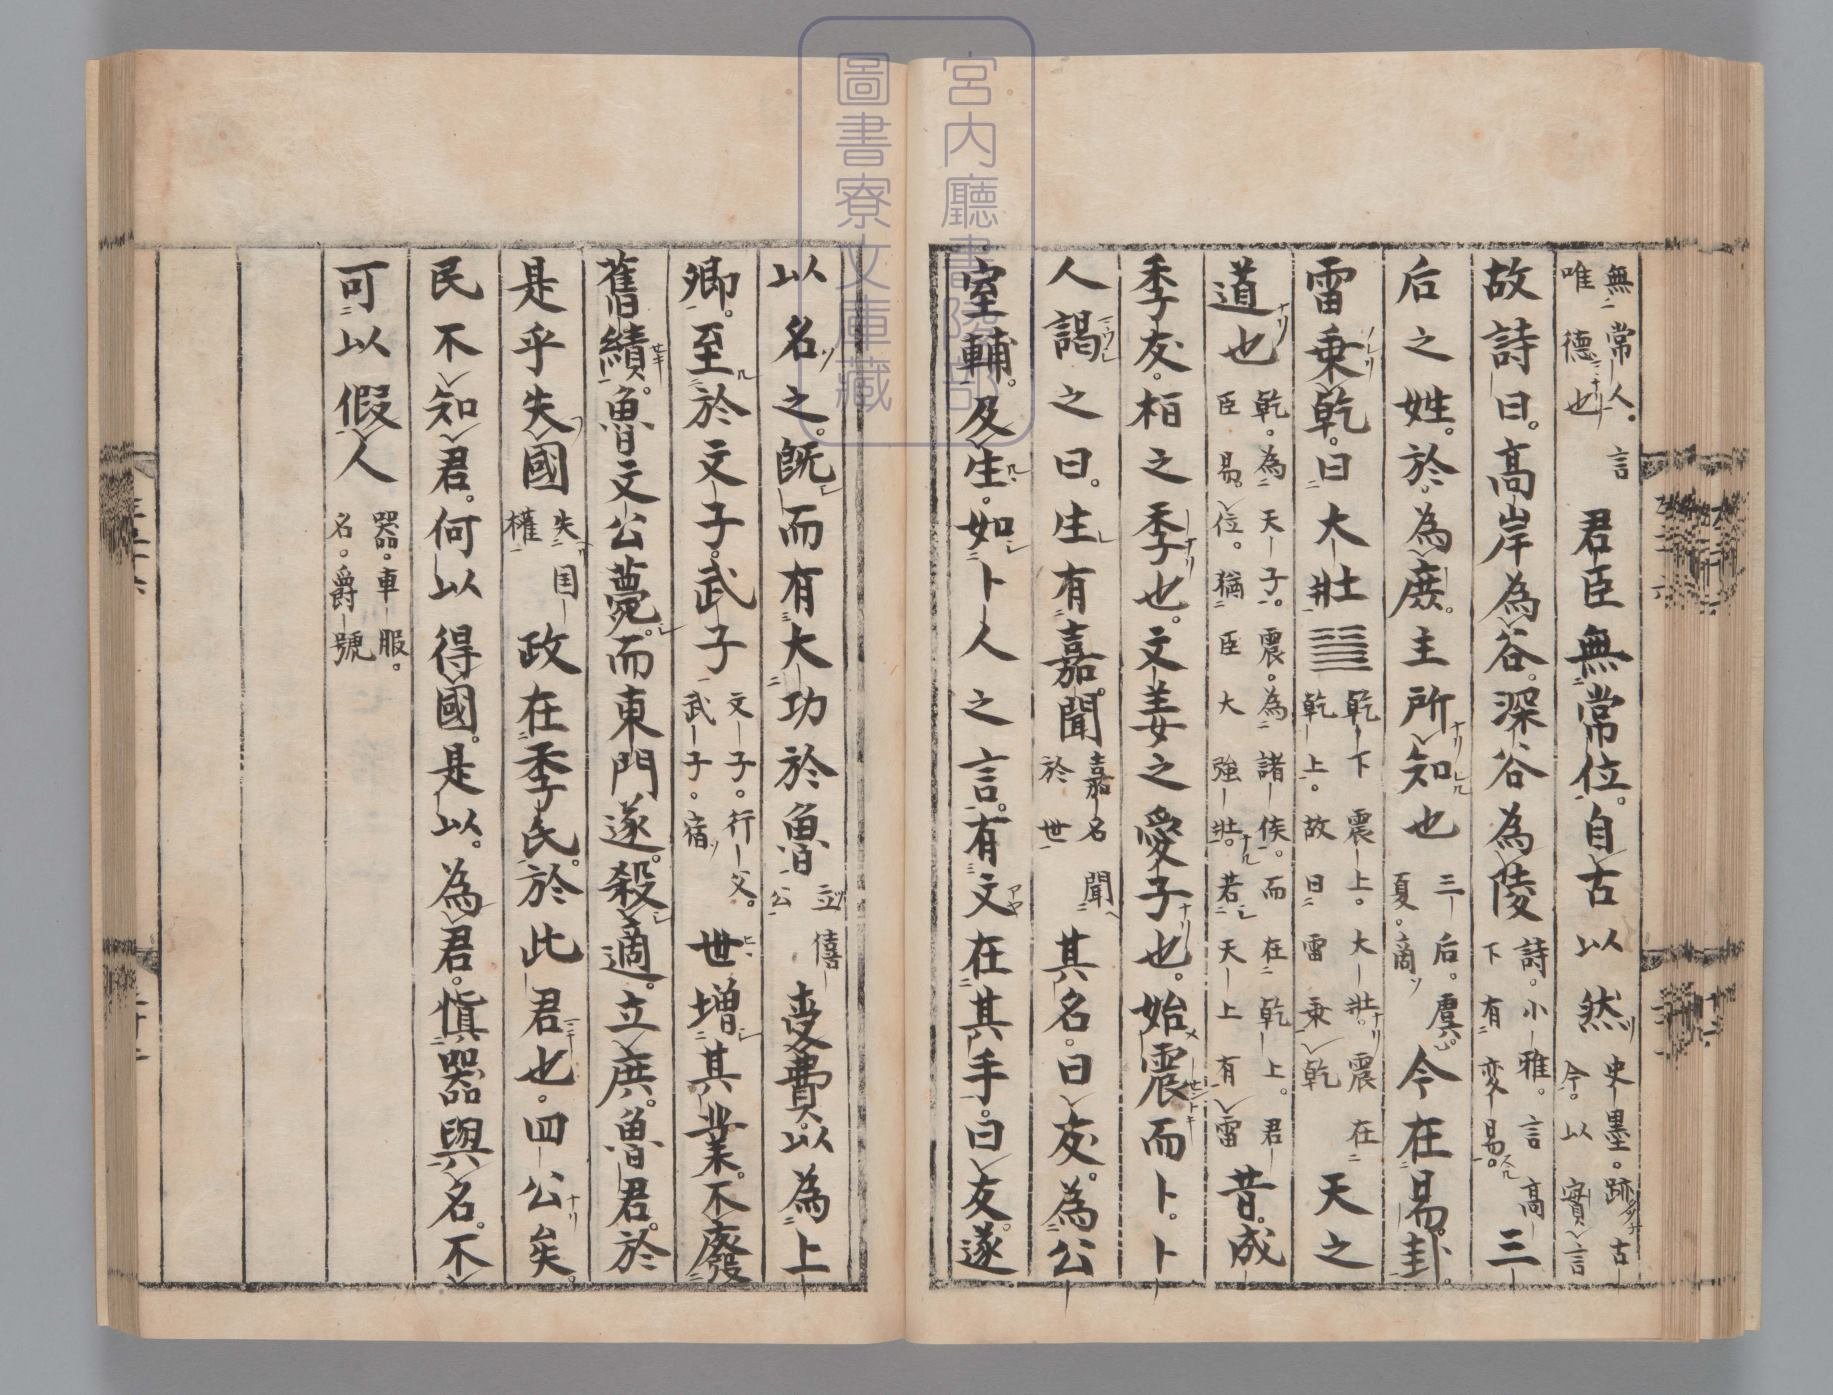 無常人。言唯德也君臣無常位。自古以然史墨。跡古今。以實言
故詩曰。高岸為谷。深谷為陵詩。小雅。言高下有変易。三
后之姓。於為庶。主所知也三后。虞夏。商今在易。卦。
雷乗乾。曰大壯䷡乾下震上。大壯震在乾上。故曰雷乗乾天之
道也乾。為天子。震。為諸侯。而在乾上。君臣易。位。猶臣大強壯。若天上有雷昔。成
季友。桓之季也。文姜之愛子也。始震而卜。卜
人謁之曰。生有嘉聞嘉名聞於世其名。曰友。為公
室輔。及生。如卜人之言。有文在其手。曰友。遂
以名之。既而有大功於魯立僖公受費。以為上
卿。至於文子。武子文子。行父。武子。宿世增其業。不廢
舊績。魯文公薨。而東門遂。殺適。立庶。魯君。於
是乎失國失国權政在季氏。於此君也。四公矣。
民不知君。何以得國。是以。為君。慎器與名。不
可以假人器。車服。名。爵號
宮内廳書陵部
圖書寮文庫藏